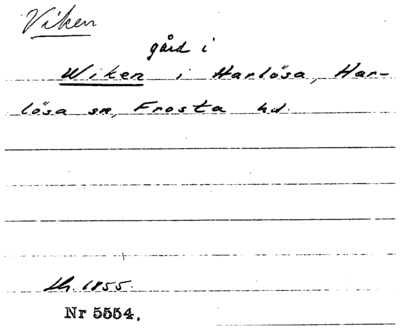 Viken
gård i
Wiken i Harlösa, Har-
lösa sn, Frosta hd.
Lh. 1855.
Nr 5554.